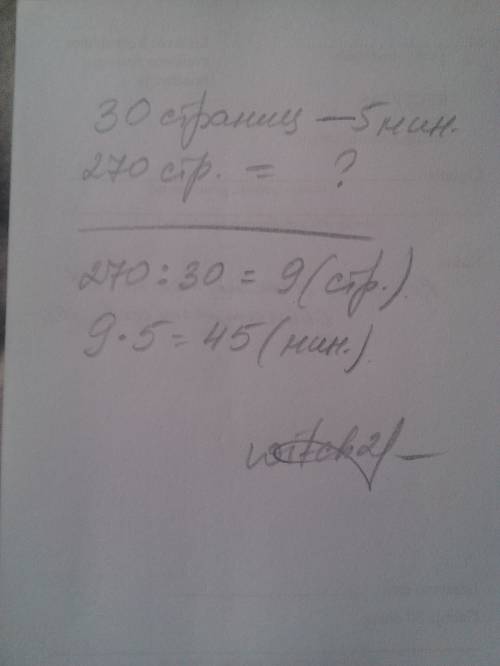 30 страниц — 5 мин.
270 стр. = ?
270 : 30 = 9 (стр.)
9 · 5 = 45 (мин.)
witch21